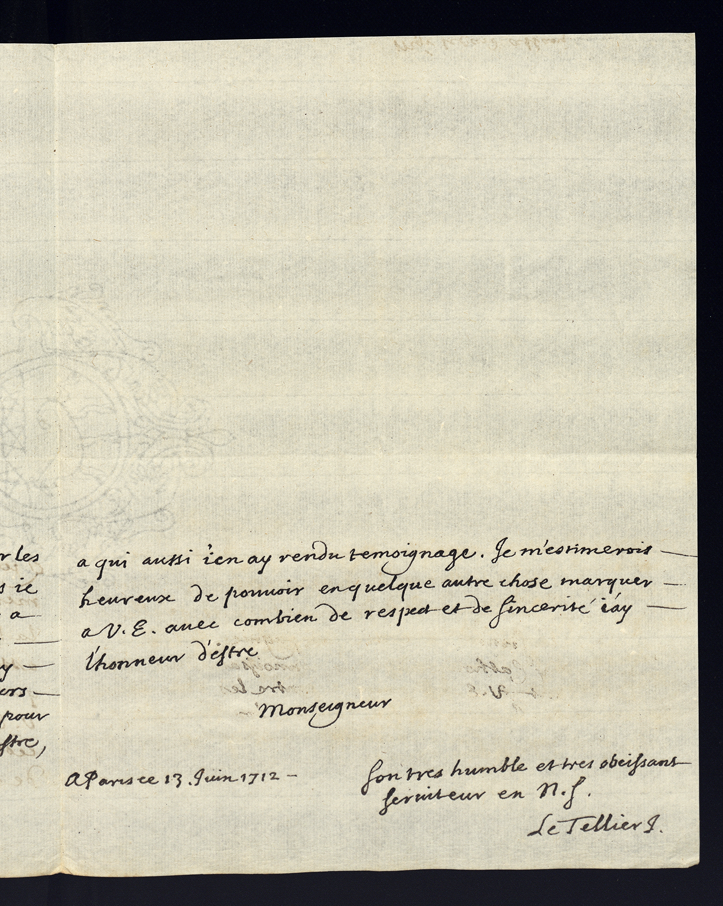 r les
s ie
a
y
ers
pour
stre,
a qui aussi i'en ay rendu temoignage. Je m'estimerois
heureux de pouvoir en quelque autre chose marquer
a V. E. avec combien de respect et de sincerité i'ay
l'honneur d'estre
Monseigneur
A Paris ce 13. Juin 1712 -
Son tres humble et tres obeissant
serviteur en N. S.
Le Tellier J.